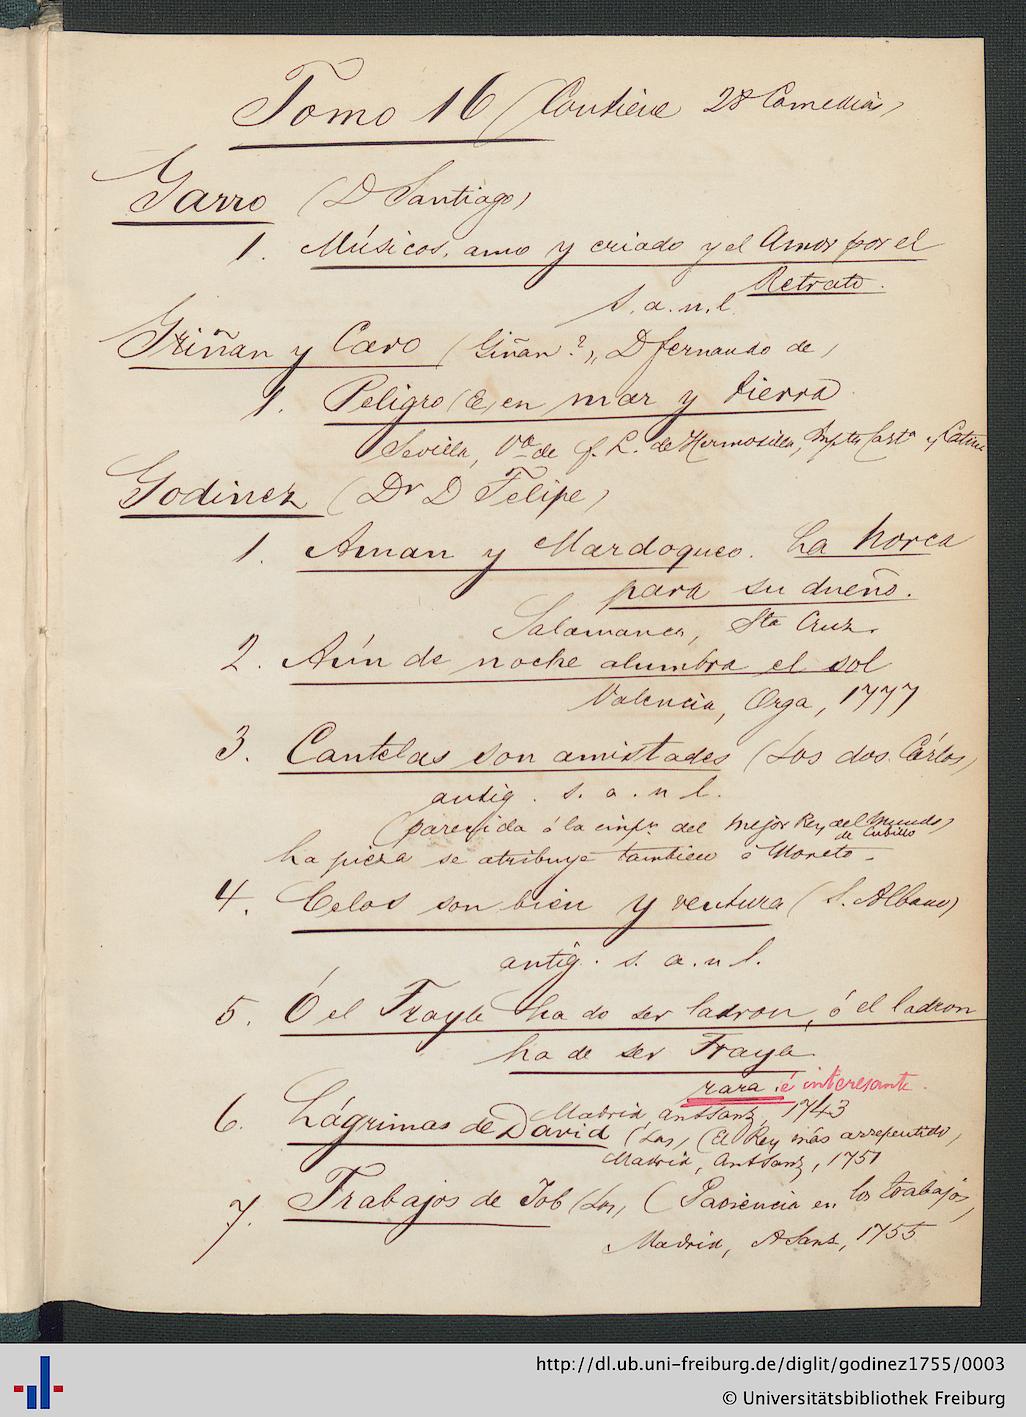 Tomo 16 (Contiene 28 Comedias)
Garro (D Santiago)
1. Músicos, amo y criado y el Amor por el
Retrato.
S. a. n. l.
Griñan y Caro (Giñan?), D Fernando de)
1. Peligro (El) en mar y tierra
Sevilla, Vda de F. L. de Hermosilla, Impta Casta y Latina
Godinez (Dr D Felipe)
1. Aman y Mardoqueo. La horca
para su dueño.
Salamanca, Sta Cruz.
2. Aún de noche alumbra el sol
Valencia, Orga, 1777
3. Cautelas son amistades (Los dos Cárlos)
antig. s. a. n l.
(parecida á la del Mejor Rey del Mundo,
de Cubillo
la pieza se atribuye tambien á Moreto.
4. Celos son bien y ventura (S. Albano)
antig. s. a. n l.
5. Ó el Frayle ha de ser ladron, ó el ladron
ha de ser Frayle
rara é interesante.
Madrid, Ant Sanz, 1743
6. Lágrimas de David (Las, (El Rey más arrepentido,
Madrid, Ant Sanz, 1751
7. Trabajos de Job (Los, (Paciencia en los trabajos,
Madrid, A Sanz, 1755
http://dl.ub.uni-freiburg.de/diglit/godinez1755/0003
© Universitätsbibliothek Freiburg